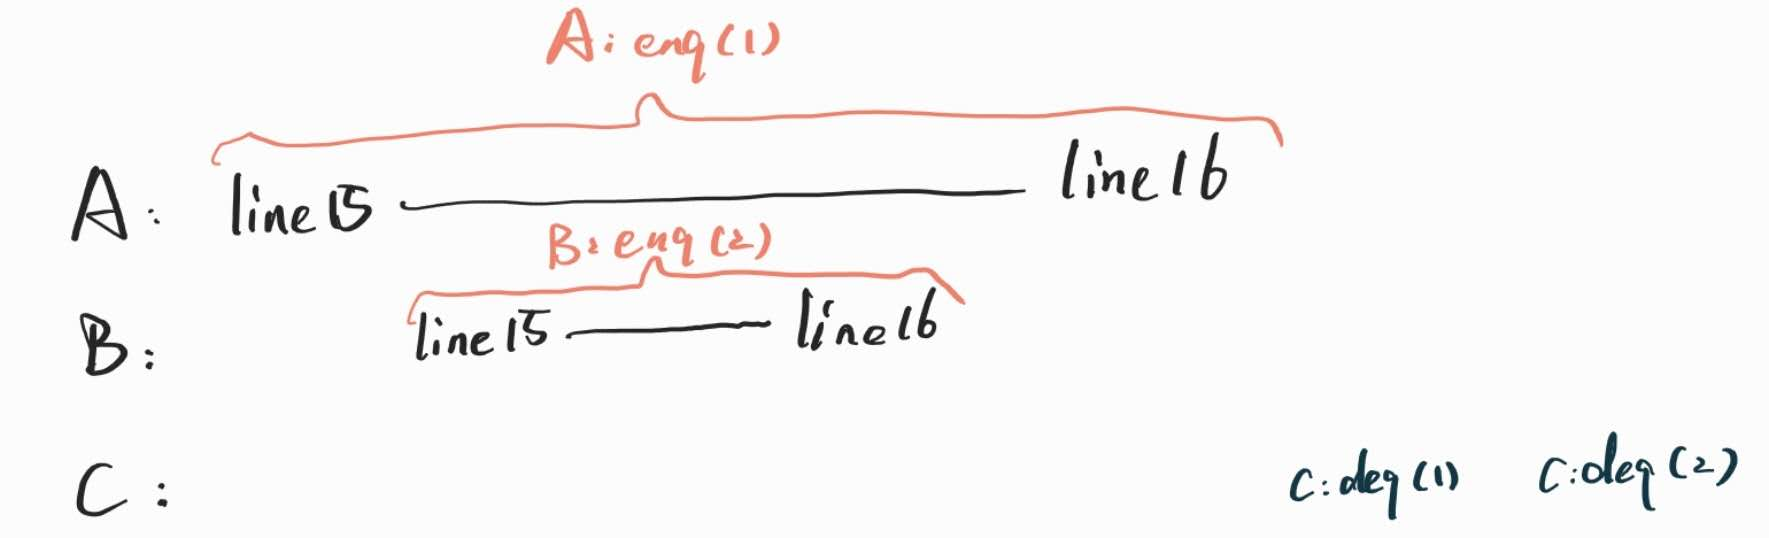 A: enq(1)
A: line 15 line 16
B: enq(2)
B: line 15 line 16
C: C: deq(1) C: deq(2)